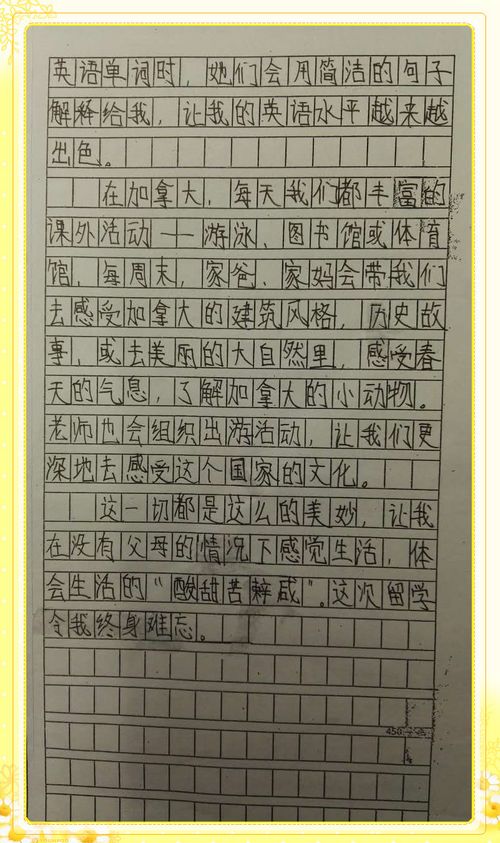 英语单词时，她们会用简洁的句子
解释给我，让我的英语水平越来越
出色。
在加拿大，每天我们都丰富的
课外活动——游泳、图书馆或体育
馆，每周末，家爸、家妈会带我们
去感受加拿大的建筑风格，历史故
事，或去美丽的大自然里，感受春
天的气息，了解加拿大的小动物。
老师也会组织出游活动，让我们更
深地去感受这个国家的文化。
这一切都是这么的美妙，让我
在没有父母的情况下感觉生活，体
会生活的“酸甜苦辣咸”。这次留学
令我终身难忘。
450